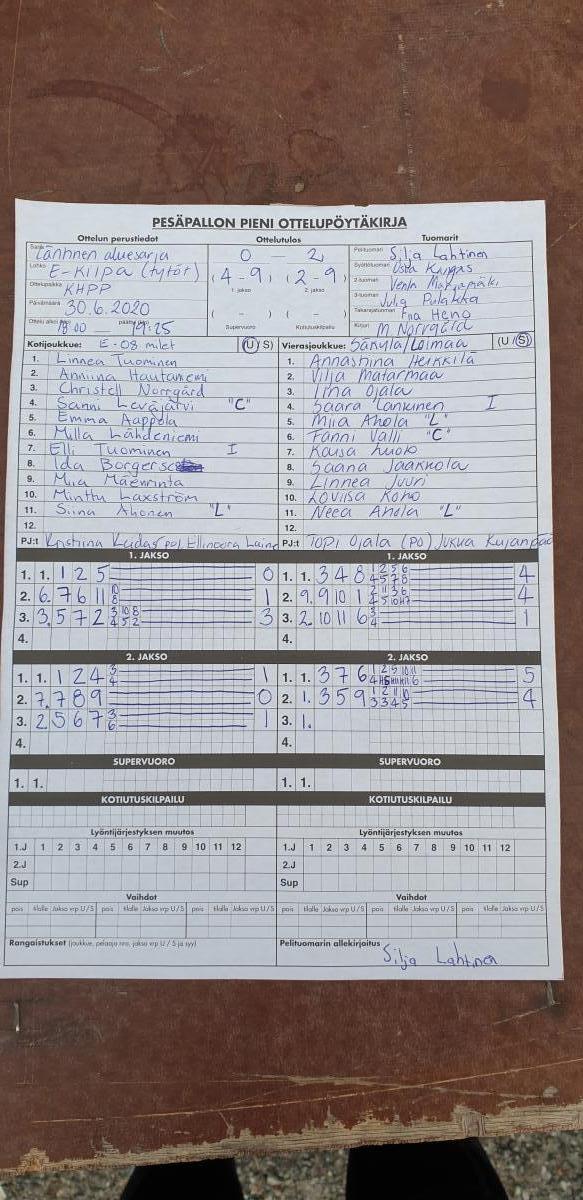 PESÄPALLON PIENI OTTELUPÖYTÄKIRJA
Ottelun perustiedot Ottelutulos Tuomarit
Sarja Läntinen aluesarja
Lohko E-Kilpa (tytöt)
Ottelupaikka KHPP
Päivämäärä 30.6.2020
Ottelu alkoi 18.00 19:25
0 - 2
(4 - 9) (2 - 9)
1. jakso 2. jakso
( - ) ( - )
Supervuoro Kotiutuskilpailu
Pelituomari Silja Lahtinen
Syöttötuomari Kangas
2-tuomari Venla
3-tuomari Julia Pulakka
Takarajatuomari Heno
Kirjuri M Norrgård
Kotijoukkue: E-08 milet (U/S)
1. Linnea Tuominen
2. Anniina Hautaniemi
3. Christell Norrgård
4. Sanni Lavajärvi "C"
5. Emma Aappola
6. Milla Lähdeniemi
7. Elli Tuominen I
8. Ida Borgers
9. Miia Mäenrinta
10. Minttu Laxström
11. Siina Ahonen "L"
12.
PJ:t Kristiina (PO), Ellinoora Laine
Vierasjoukkue: Säkylä/Loimaa (U/S)
1. Annastiina Heikkilä
2. Vilja Matarmaa
3. Iina Ojala
4. Saara Lankinen I
5. Miia Ahola "L"
6. Fanni Valli "C"
7. Kaisa Luoto
8. Saana Jaakkola
9. Linnea Juuri
10. Loviisa Koho
11. Neea Ahola "L"
12.
PJ:t Topi Ojala (PO) Jukka Kujanpää
1. JAKSO 1. JAKSO
1. 1. 1 2 5 0
2. 6. 7 6 11 10 8 1
3. 3. 5 7 2 3 10 8 4 5 2 3
4.
1. 1. 3 4 8 1 2 5 6 4 5 7 8 4
2. 9. 9 10 1 4
3. 2. 10 11 6 3 4 1
4.
2. JAKSO 2. JAKSO
1. 1. 1 2 4 3 4 1
2. 7. 7 8 9 0
3. 2 5 6 7 3 6 1
4.
1. 1. 3 7 6 5
2. 1. 3 5 9 1 2 11 10 3 3 4 5 4
3. 1.
4.
SUPERVUORO SUPERVUORO
1. 1. 1. 1.
KOTIUTUSKILPAILU KOTIUTUSKILPAILU
Lyöntijärjestyksen muutos Lyöntijärjestyksen muutos
1.J 1 2 3 4 5 6 7 8 9 10 11 12 1.J 1 2 3 4 5 6 7 8 9 10 11 12
2.J 2.J
Sup Sup
Vaihdot Vaihdot
pois tilalle Jakso vrp U/S pois tilalle Jakso vrp U/S pois tilalle Jakso vrp U/S pois tilalle Jakso vrp U/S pois tilalle Jakso vrp U/S pois tilalle Jakso vrp U/S
Rangaistukset (joukkue, pelaaja nro, jakso vrp U / S ja syy) Pelituomarin allekirjoitus
Silja Lahtinen